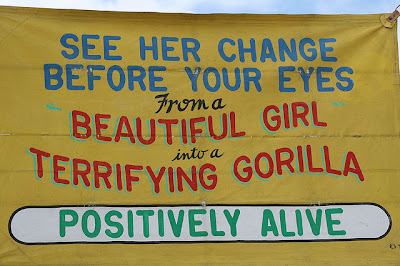 SEE HER CHANGE
BEFORE YOUR EYES
From a
"BEAUTIFUL GIRL"
into a
TERRIFYING GORILLA
POSITIVELY ALIVE